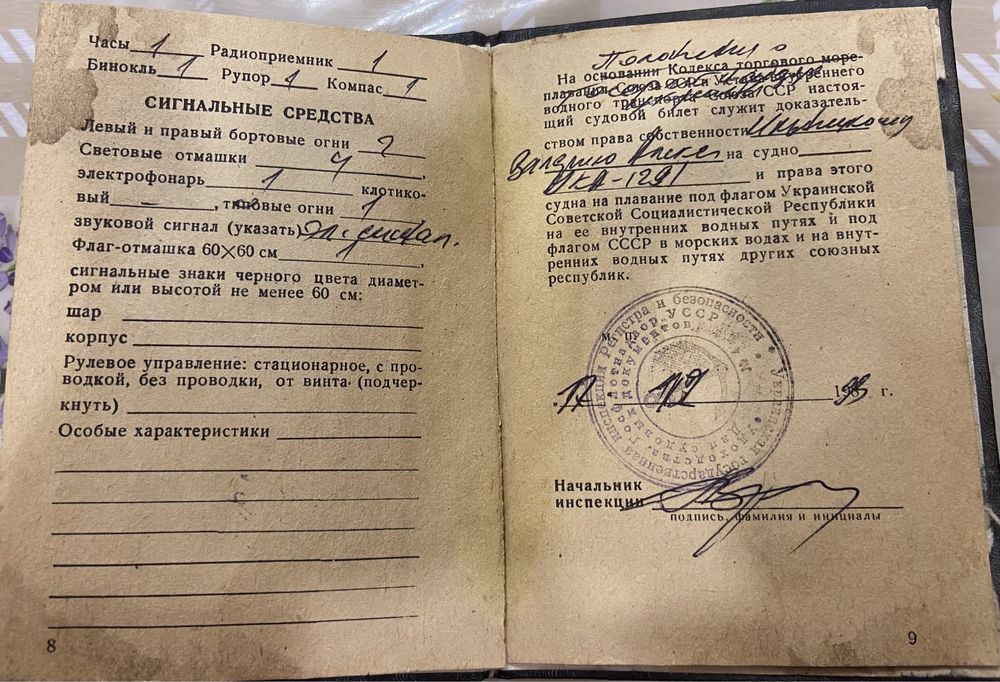 Часы 1 Радиоприемник 1
Бинокль 1 Рупор 1 Компас 1
СИГНАЛЬНЫЕ СРЕДСТВА
Левый и правый бортовые огни 2
Световые отмашки ,
электрофонарь 1 клотико-
вый , типовые огни 1
звуковой сигнал (указать) Эл. сигнал.
Флаг-отмашка 60×60 см ,
сигнальные знаки черного цвета диамет-
ром или высотой не менее 60 см:
шар
корпус
Рулевое управление: стационарное, с про-
водкой, без проводки, от винта (подчер-
кнуть)
Особые характеристики
8
Положения о
На основании Кодекса торгового море-
плавания Союза ССР и Устава внутреннего
водного транспорта Союза ССР настоя-
щий судовой билет служит доказатель-
ством права собственности
на судно
и права этого
судна на плавание под флагом Украинской
Советской Социалистической Республики
на ее внутренних водных путях и под
флагом СССР в морских водах и на внут-
ренних водных путях других союзных
республик.
М. П.
Государственная инспекция Регистра и безопасности * Украинская
Для судовых документов
17 19 г.
Начальник
инспекции
подпись, фамилия и инициалы
9